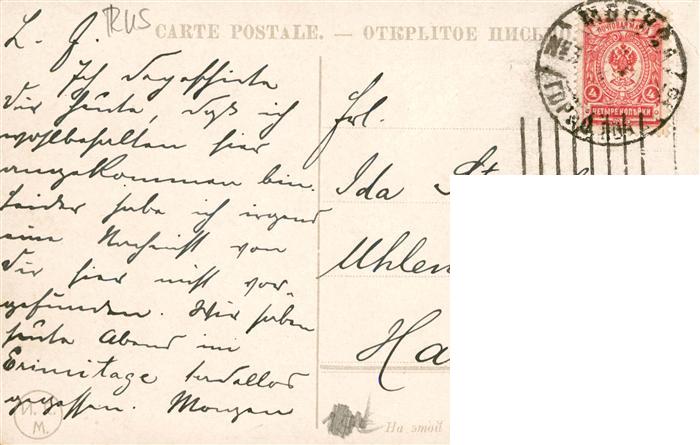 RUS
CARTE POSTALE. — ОТКРЫТОЕ ПИСЬ
L. J.
Ich
Dir heute, daß ich
wohlbehalten hier
angekommen bin.
Leider habe ich irgend
eine Nachricht von
Dir hier nicht vor-
gefunden. Wir haben
heute Abend im
Erimitage tadellos
gegessen. Morgen
Frl.
Ida
Uhlen
Ha
МОСКВА
ПОЧТОВАЯ МАРКА
4 4
ЧЕТЫРЕ КОПѢЙКИ
На этой